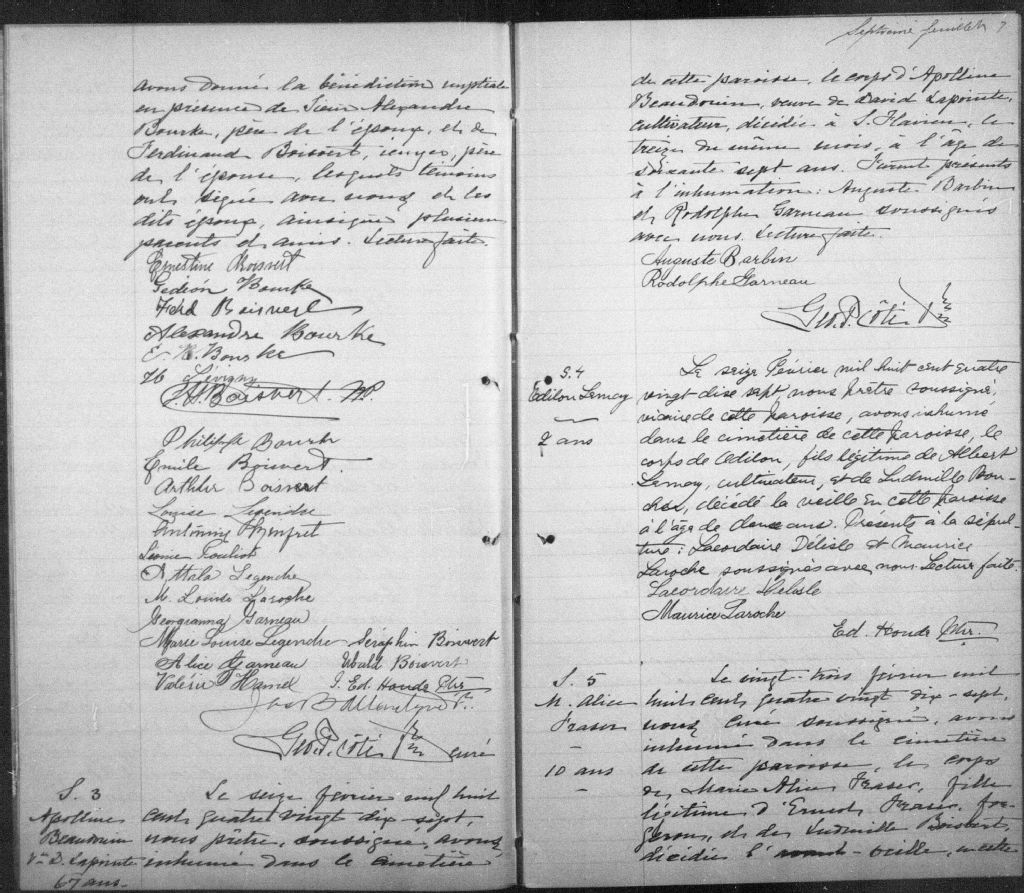 avons donné la bénédiction nuptiale
en présence de Sieur Alexandre
Bourke, père de l'époux, et de
Ferdinand Boisvert, père
de l'épouse, lesquels témoins
ont signé avec nous et les
dits époux, ainsique plusieurs
parents et amis. Lecture faite.
Ernestine Boisvert
Gédéon Bourke
Ferd Boisvert
Alexandre Bourke
E. R. Bourke
Lévigny
Boisvert
Philippe Bourke
Emile Boisvert.
Arthur Boisvert
Louise Legendre
Leonie Pouliot
Attala Legendre
M. Louise Laroche
Georgianna Garneau
Marie Louise Legendre Séraphin Boisvert
Alice Garneau Ubald Boisvert
Valérie Hamel J. Ed. Houde Ptr
Geo. P. Côté Ptre curé
S. 3
Apolline
Beaudoin
Vve D. Lapointe
67 ans.
Le seize février mil huit
cent quatre vingt dix sept,
nous prêtre, soussigné, avons
inhumé dans le cimetière
Septième feuillet 7
de cette paroisse, le corps d'Apolline
Beaudouin, veuve de David Lapointe,
cultivateur, décédée à S. Flavien, le
treize du même mois, à l'âge de
soixante sept ans. Furent présents
à l'inhumation: Auguste Barbin
et Rodolphe Garneau soussignés
avec nous. Lecture faite.
Auguste Barbin
Rodolphe Garneau
Geo. P. Côté Ptre
S. 4
Odilon Lemay
2 ans
Le seize Février mil huit cent quatre
vingt dise sept, nous prêtre soussigné,
vicaire de cette paroisse, avons inhumé
dans le cimetière de cette paroisse, le
corps de Odilon, fils légitime de Albert
Lemay, cultivateur, et de Ludmille Bou-
cher, décédé la veille en cette paroisse
à l'âge de deux ans. Présents à la sépul-
ture: Lacordaire Délisle et Maurice
Laroche soussignés avec nous. Lecture faite.
Lacordaire Delisle
Maurice Laroche
Ed. Houde Ptr.
S. 5
M. Alice
Fraser
10 ans
Le vingt-trois février mil
huit cent quatre vingt dix-sept,
nous, curé soussigné, avons
inhumé dans le cimetière
de cette paroisse, le corps
de Marie Alice Fraser, fille
légitime d'Ernest Fraser, for-
geron, et de Ludmille Boisvert,
décédée l'avant-veille, en cette